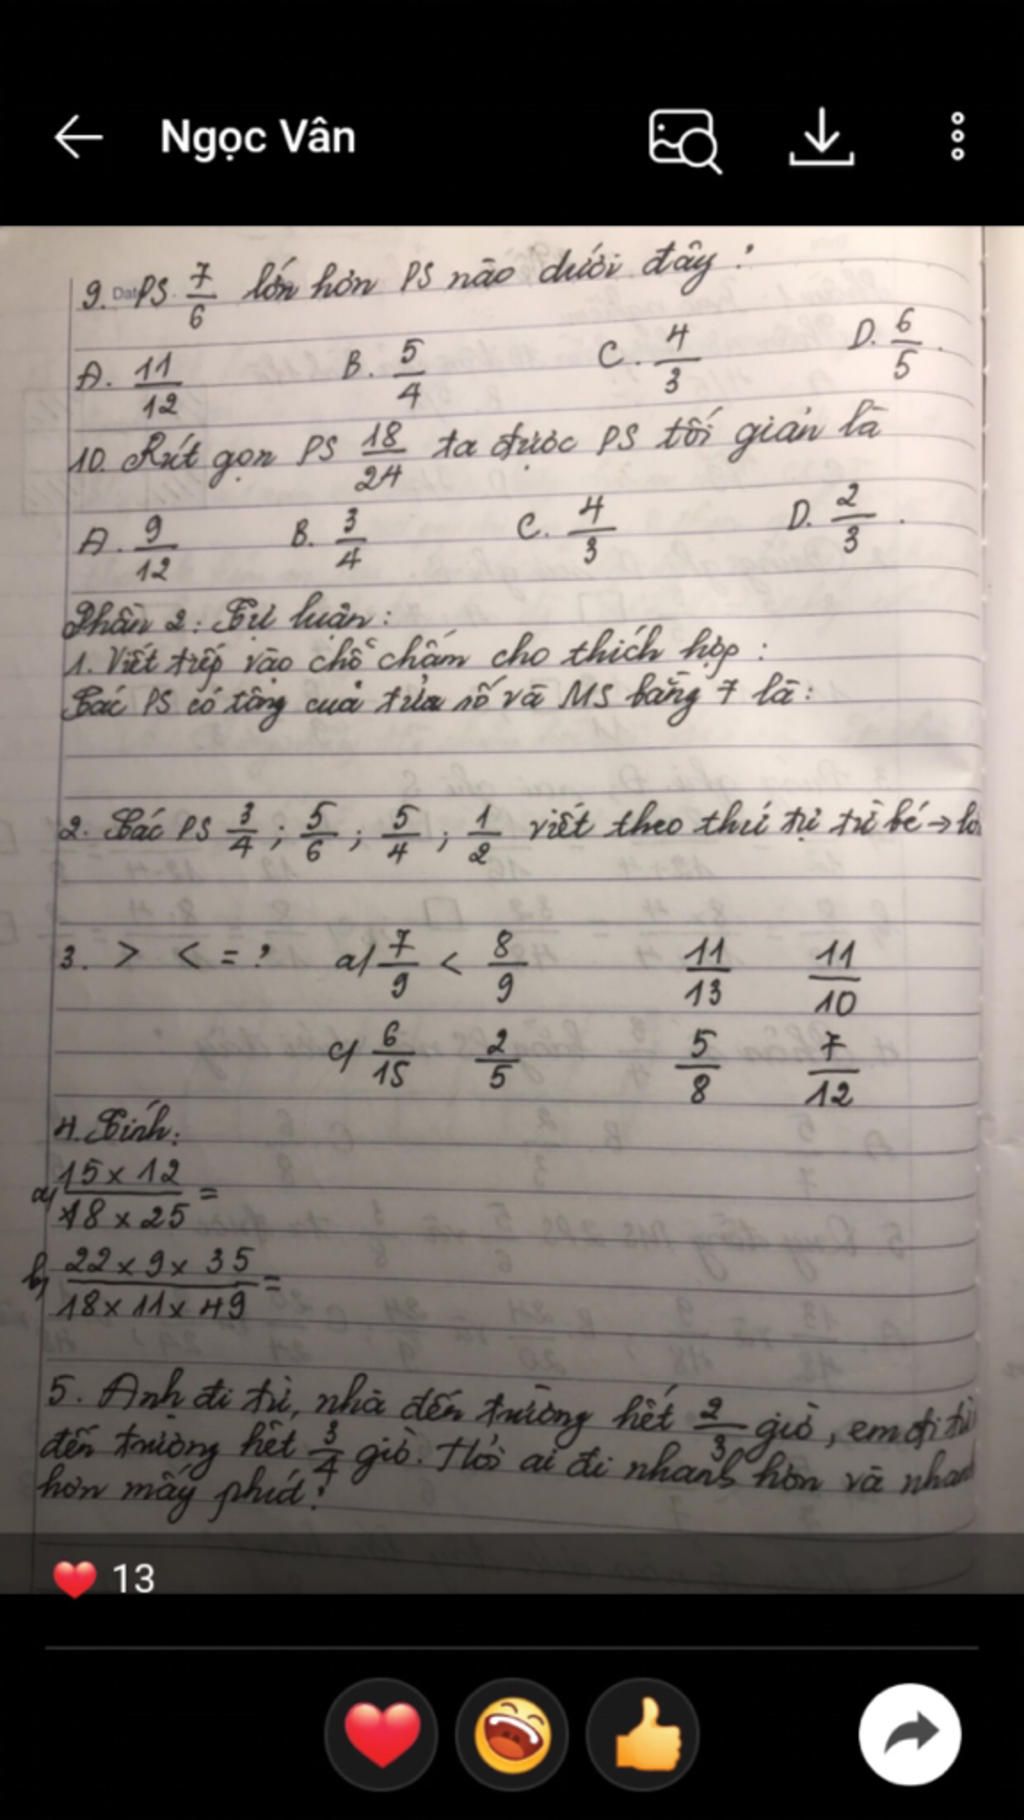 Ngọc Vân
9. PS 7/6 lớn hơn PS nào dưới đây?
A. 11/12 B. 5/4 C. 4/3 D. 6/5.
10. Rút gọn PS 18/24 ta được PS tối giản là
A. 9/12 B. 3/4 C. 4/3 D. 2/3.
Phần 2: Tự luận:
1. Viết tiếp vào chỗ chấm cho thích hợp:
Các PS có tổng của tử số và MS bằng 7 là:
2. Các PS 3/4; 5/6; 5/4; 1/2 viết theo thứ tự từ bé→
3. > < = ? a) 7/9 < 8/9 11/13 11/10
c) 6/15 2/5 5/8 7/12
4. Tính:
a) 15 x 12 / 18 x 25 =
b) 22 x 9 x 35 / 18 x 11 x 49 =
5. Anh đi từ nhà đến trường hết 2/3 giờ, em đi từ
đến trường hết 3/4 giờ. Hỏi ai đi nhanh hơn và nhanh
hơn mấy phút?
13